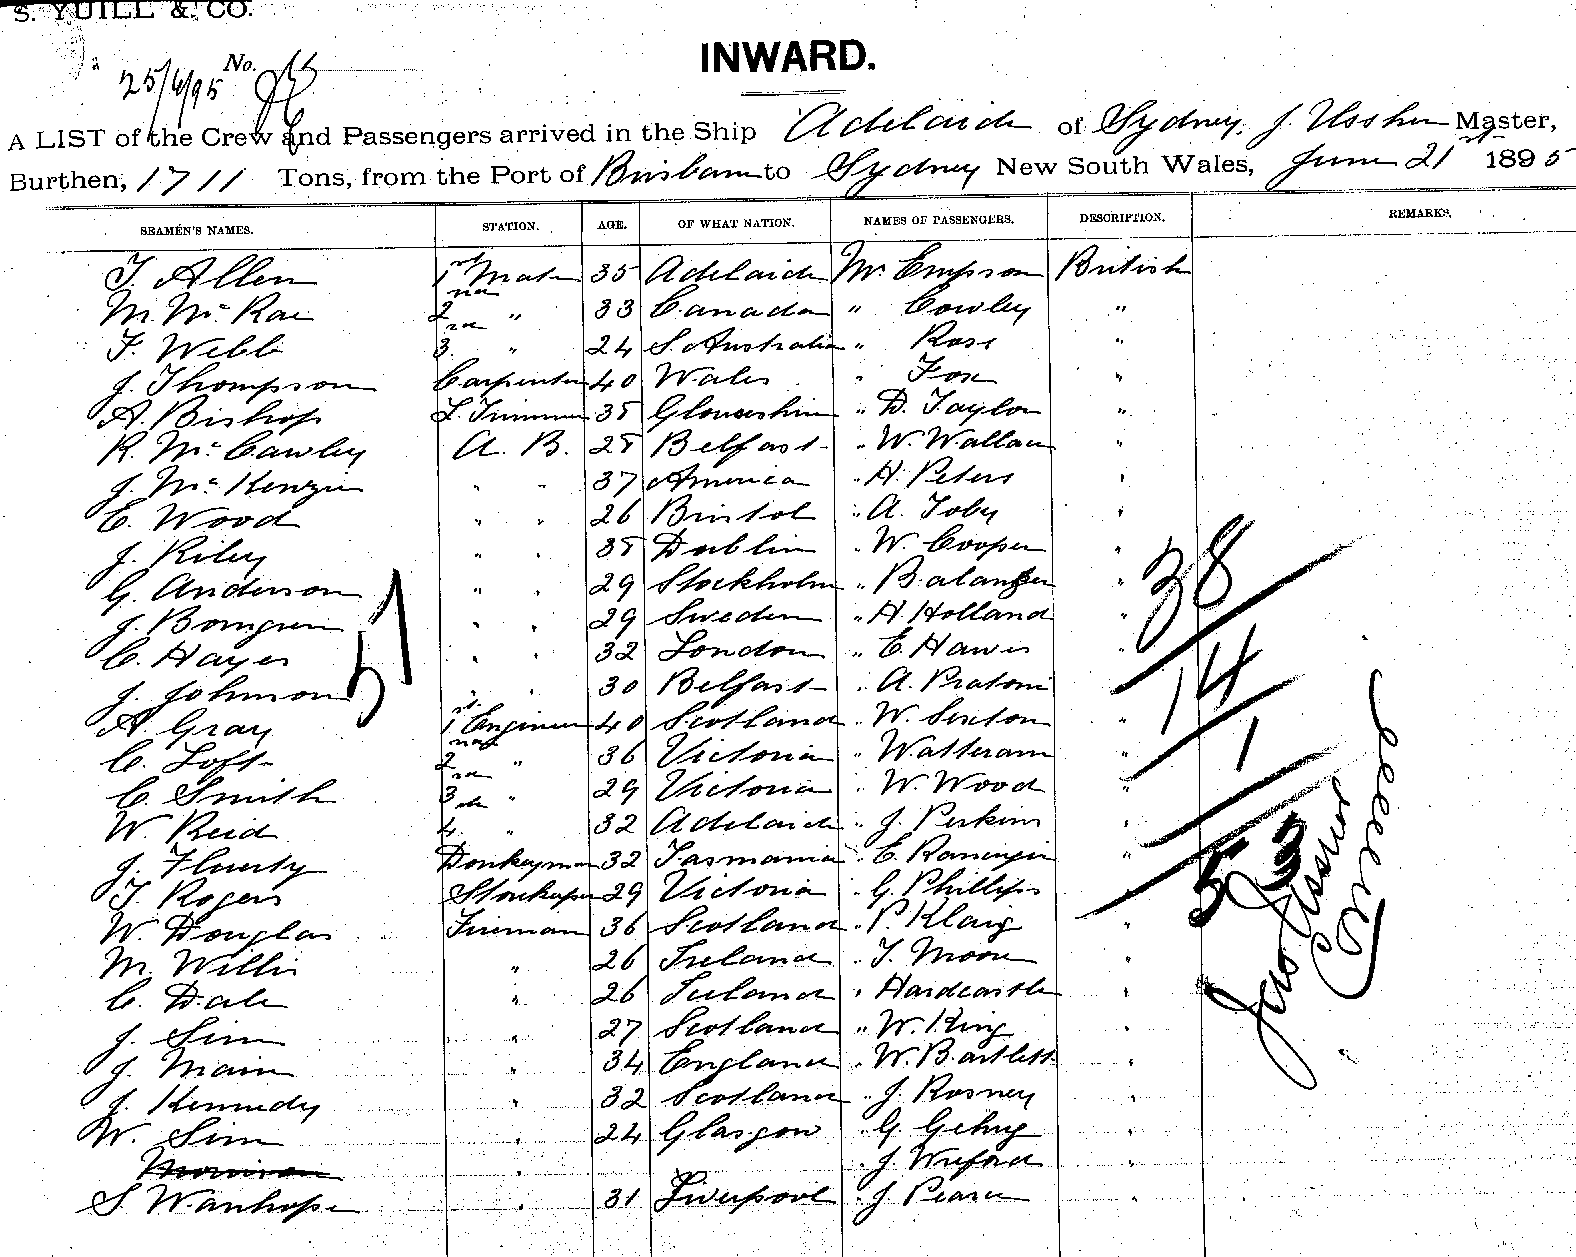 S. YUILL & CO.
INWARD.
25/6/95 No.
A LIST of the Crew and Passengers arrived in the Ship Adelaide of Sydney, J. Ussher Master,
Burthen, 1711 Tons, from the Port of Brisbane to Sydney New South Wales, June 21st 1895
SEAMEN'S NAMES. STATION. AGE. OF WHAT NATION. NAMES OF PASSENGERS. DESCRIPTION. REMARKS.
T. Allen 1st Mate 35 Adelaide Mr Empson British
M. McRae 2nd " 33 Canada " Cowley "
F. Webb 3rd " 24 S. Australia " Rose "
J. Thompson Carpenter 40 Wales " Fox "
A. Bishop L. Trimmer 38 Gloucshire " D. Taylor "
R. McCawley A. B. 28 Belfast " W. Wallace "
J. McKenzie " " 37 America " H. Peters "
C. Wood " " 26 Bristol " A. Toby "
J. Riley " " 38 Dublin " W. Cooper "
G. Anderson " " 29 Stockholm " Balanger "
J. Bomgren " " 29 Sweden " H. Holland "
C. Hayes " " 32 London " E. Hawes "
J. Johnson " " 30 Belfast " A. "
A. Gray 1st Engineer 40 Scotland " W. Sexton "
C. Loft 2nd " 36 Victoria " Watteram "
C. Smith 3rd " 29 Victoria " W. Wood "
W. Reid 4th " 32 Adelaide " J. Perkins "
J. Fluerty Donkeyman 32 Tasmania " E. "
T. Rogers Storekeeper 29 Victoria " G. Phillips "
W. Douglas Fireman 36 Scotland " P. Klaig "
M. Willis " 26 Ireland " T. Moore "
C. Dale " 26 Iceland " Hardcastle "
J. Sim " 27 Scotland " W. King "
J. Main " 34 England " W. Bartlett "
J. Kennedy " 32 Scotland " J. Rosney "
W. Sim " 24 Glasgow " G. Gehrig "
Morrison " " J. Wreford "
S. Wanhope " 31 Liverpool " J. Pearce "
51
38
14
1
53
Jas Ussher